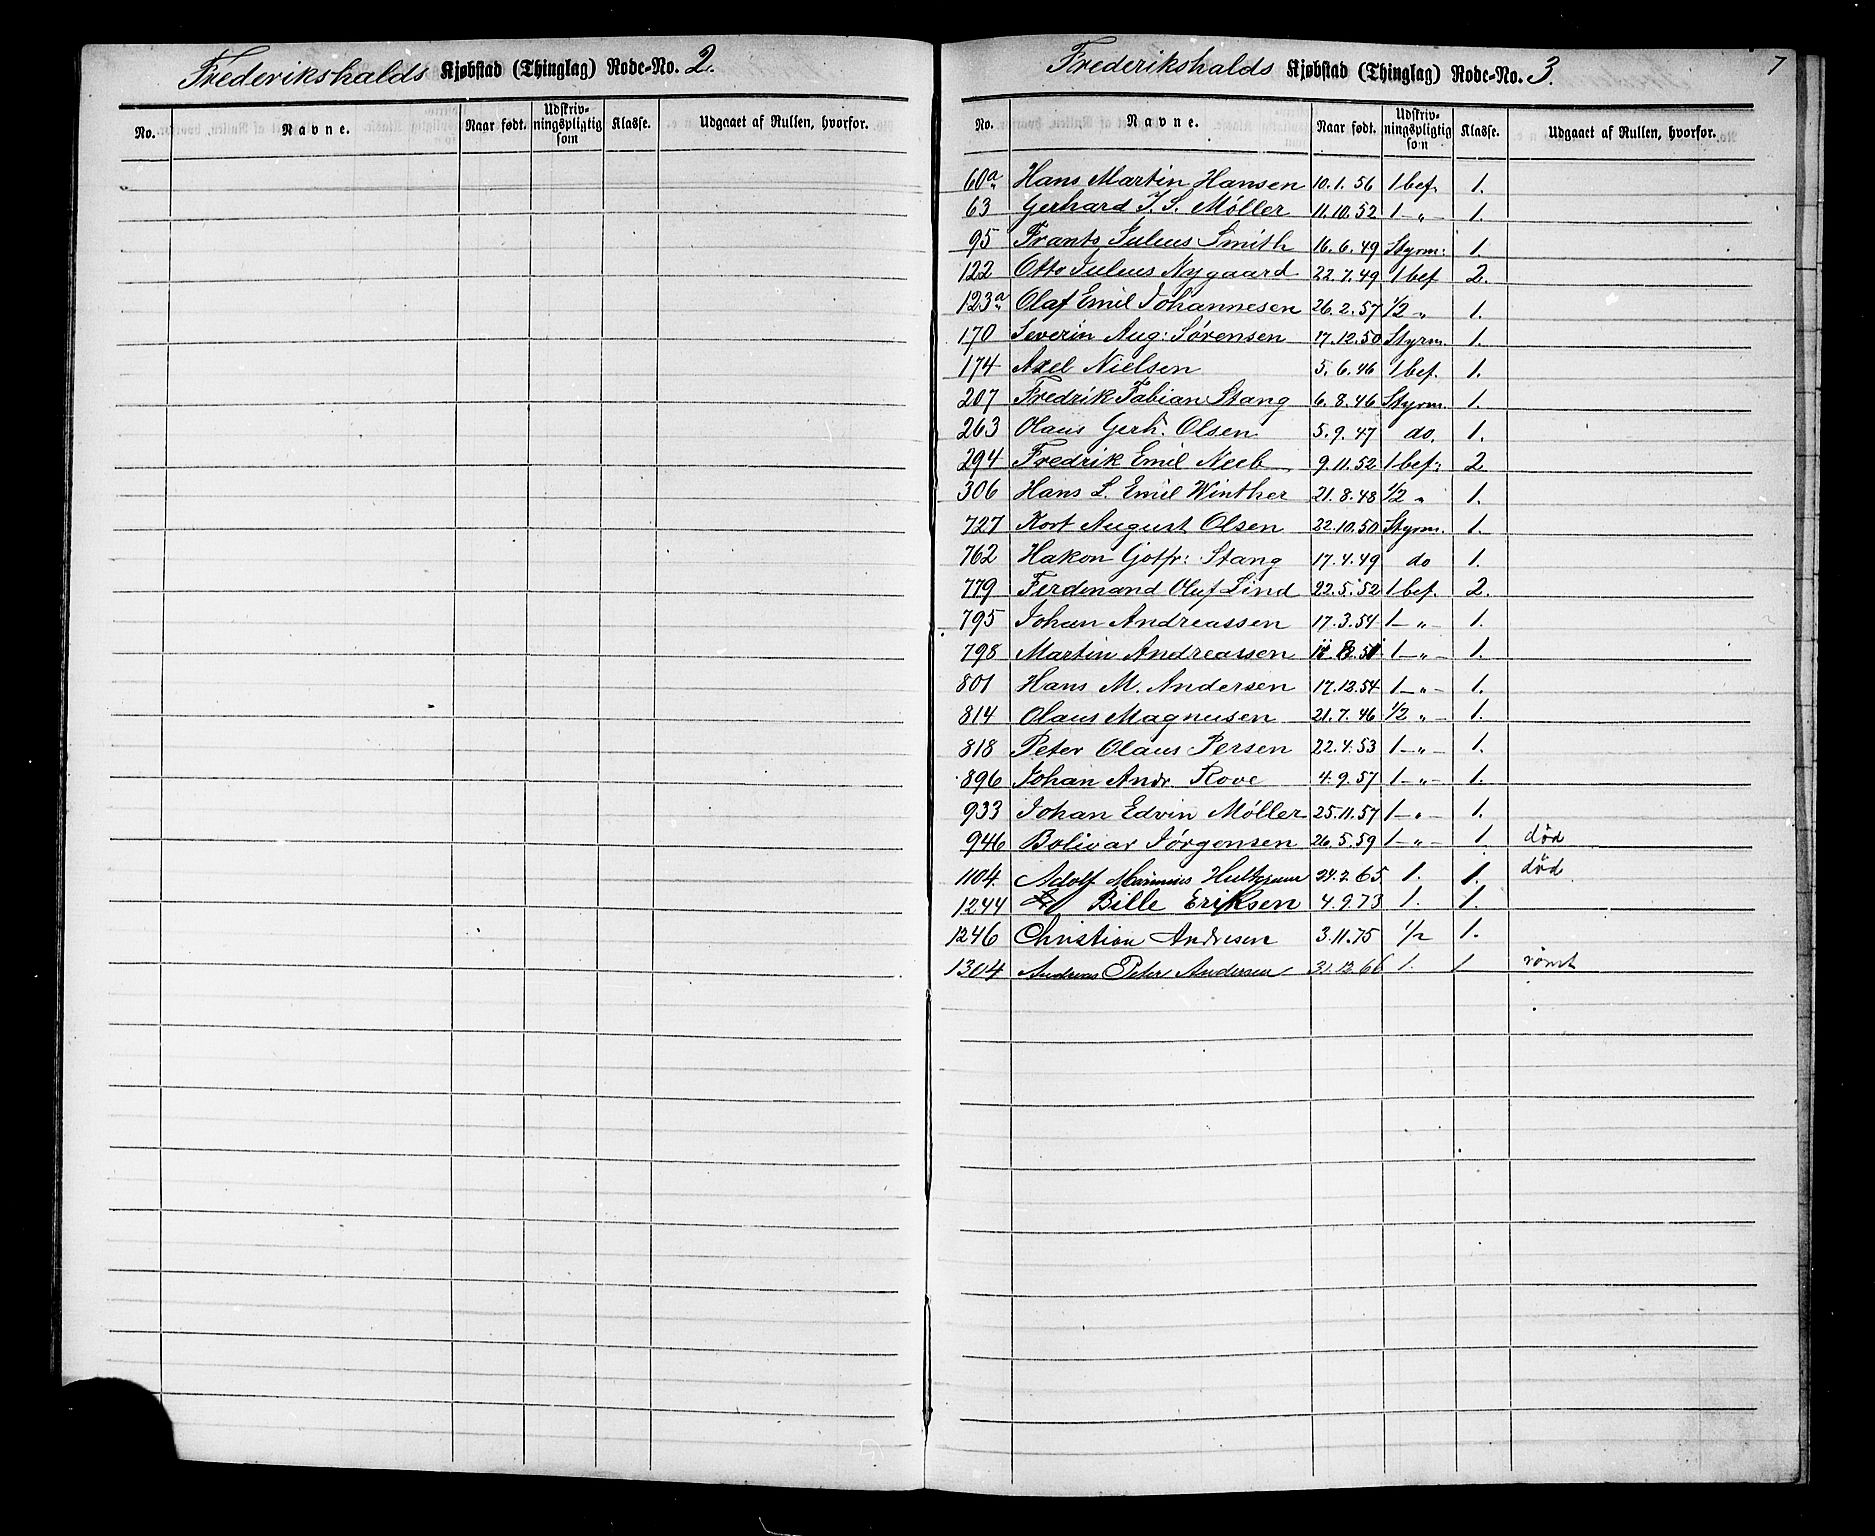 Frederikshalds Kjøbstad (Thinglag) Rode-No. 2.
No. Navne. Naar født. Udskrivningspligtig som Klasse. Udgaaet af Rullen, hvorfor.
Frederikshalds Kjøbstad (Thinglag) Rode-No. 3. 7
No. Navne. Naar født. Udskrivningspligtig som Klasse. Udgaaet af Rullen, hvorfor.
60a Hans Martin Hansen 10.1.56 1 bef. 1.
63 Gerhard J. S. Møller 11.10.52 1 - „ - 1.
95 Frants Julius Smith 16.6.49 Styrm: 1.
122 Otto Julius Nygaard 22.7.49 1 bef 2.
123a Olaf Emil Johannesen 26.2.57 1/2 „ 1.
170 Severin Aug: Sørensen 17.12.50 Styrm. 1.
174 Axel Nielsen 5.6.46 1 bef. 1.
207 Fredrik Fabian Stang 6.8.46 Styrm. 1.
263 Olaus Gerh. Olsen 5.9.47 do. 1.
294 Fredrik Emil Neeb 9.11.52 1 bef: 2.
306 Hans L. Emil Winther 21.8.48 1/2 „ 1.
727 Kort August Olsen 22.10.50 Styrm. 1.
762 Hakon Gotfr: Stang 17.4.49 do 1.
779 Ferdinand Oluf Lind 22.5.52 1 bef. 2.
795 Johan Andreassen 17.3.54 1 - „ - 1.
798 Martin Andreassen 1 - „ - 1.
801 Hans M. Andersen 17.12.54 1 - „ - 1.
814 Olaus Magnusen 21.7.46 1/2 „ - 1.
818 Peter Olaus Persen 22.4.53 1 - „ - 1.
896 Johan Andr. Rove 4.9.57 1 - „ - 1.
933 Johan Edvin Møller 25.11.57 1 - „ - 1.
946 Bolivar Jørgensen 26.5.59 1 - „ - 1. død
1104. Adolf Marinius 24.2.65 1. 1. død
1244 Bille Eriksen 4.9.73 1. 1.
1246 Christian Andresen 3.11.75 1/2 1.
1304 Andreas Peter Andersen 31.12.66 1. 1 rømt